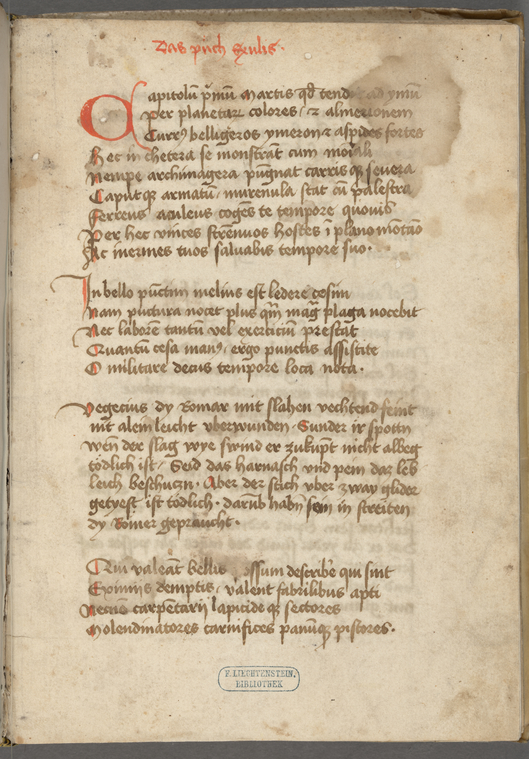 Das puch
Capitolũ p̃mũ Martis qđ tend ad ymũ
Per planetar colores ⁊ almerionem
Curr⁹ belligeros ymeron ⁊ aspides fortes
Hec in chetera se monstrãt cum
Nempe archimagera pũgnat carris qʒ severa
Caput qʒ armatũ murenula stat cũ palestra
Ferreus aculeus coges te tempore quouis
Per hec vinces strẽnuos hostes ĩ plano mõtano
Ac inermes tuos saluabis tempore suo ·
In bello pũctim melius est ledere cesim
Nam puctura nocet plus qm̃ mag plaga nocebit
Nec laborẽ tantũ vel exerciciũ prestat
Quantũ cesa man⁹ ergo punctis assistite
O militare decus tempore loca nota ·
Vegecius dy Romar mit slahen vechtend seint
nit alein leicht vberwunden · Sunder ir spotin
wen der slag wye swind er zukũpt nicht albeg
tödlich ist / Seid das harnasch vnd pein daz leb
leich beschuczn · Aber der stich vber zway glider
getyeft ist tödlich · darũb habn sein in streiten
dy Romer gepraucht ·
Qui valeãt bellis ossum describe qui sint
Eximiis demptis / valent fabrilibus apti
Necnõ carpetarij lapicide qʒ sectores
Molendinatores carnifices panũqʒ pistores ·
F. LIECHTENSTEIN.
BIBLIOTHEK